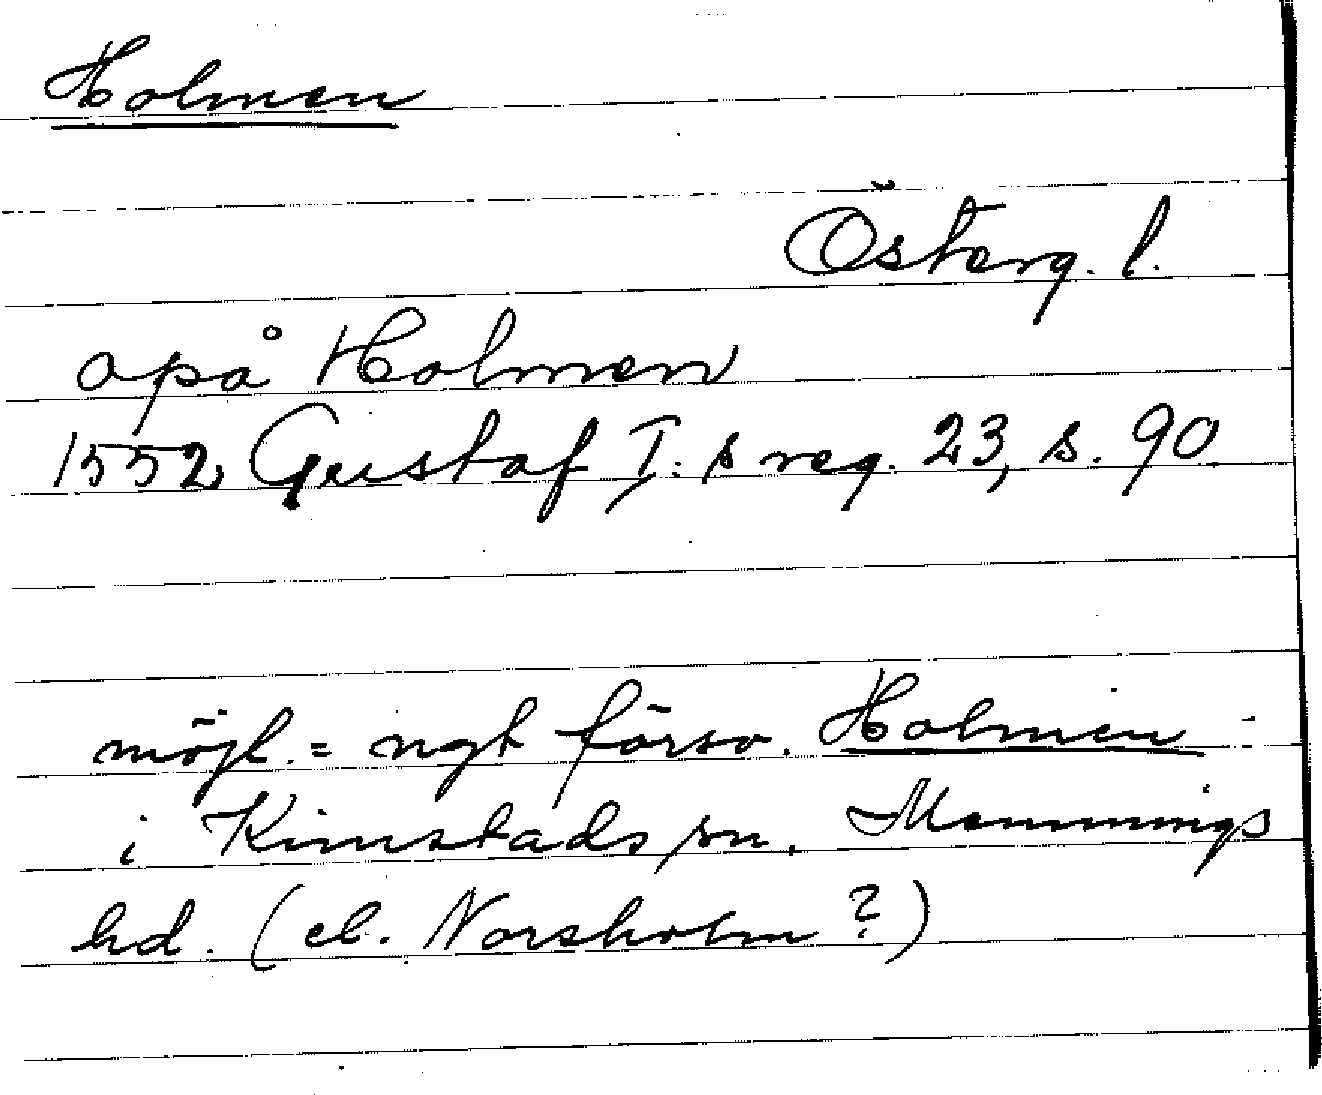 Holmen
Österg. l.
opå Holmen
1552 Gustaf I:s reg. 23, s. 90
möjl. = ngt försv. Holmen
i Kimstads sn, Memmings
hd. (el. Norsholm?)